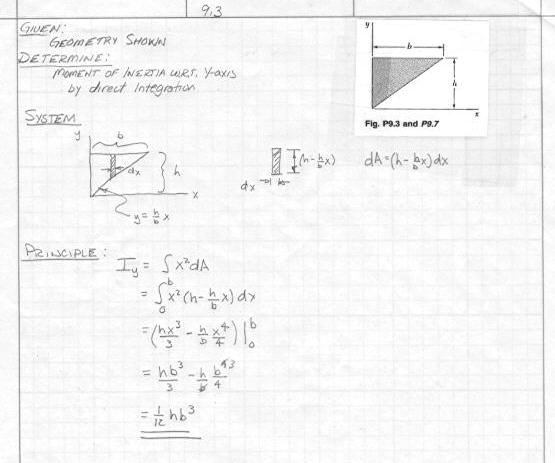 9.3
GIVEN:
GEOMETRY SHOWN
DETERMINE:
MOMENT OF INERTIA W.R.T. Y-AXIS
by direct Integration
y
b
h
x
Fig. P9.3 and P9.7
SYSTEM
y
b
dx
h
x
y = h/b x
dx
(h - h/b x)
dA = (h - h/b x) dx
PRINCIPLE:
I_y = ∫ x² dA
= ∫₀ᵇ x² (h - h/b x) dx
= (hx³/3 - h/b x⁴/4) |₀ᵇ
= hb³/3 - h/b b⁴³/4
= 1/12 hb³